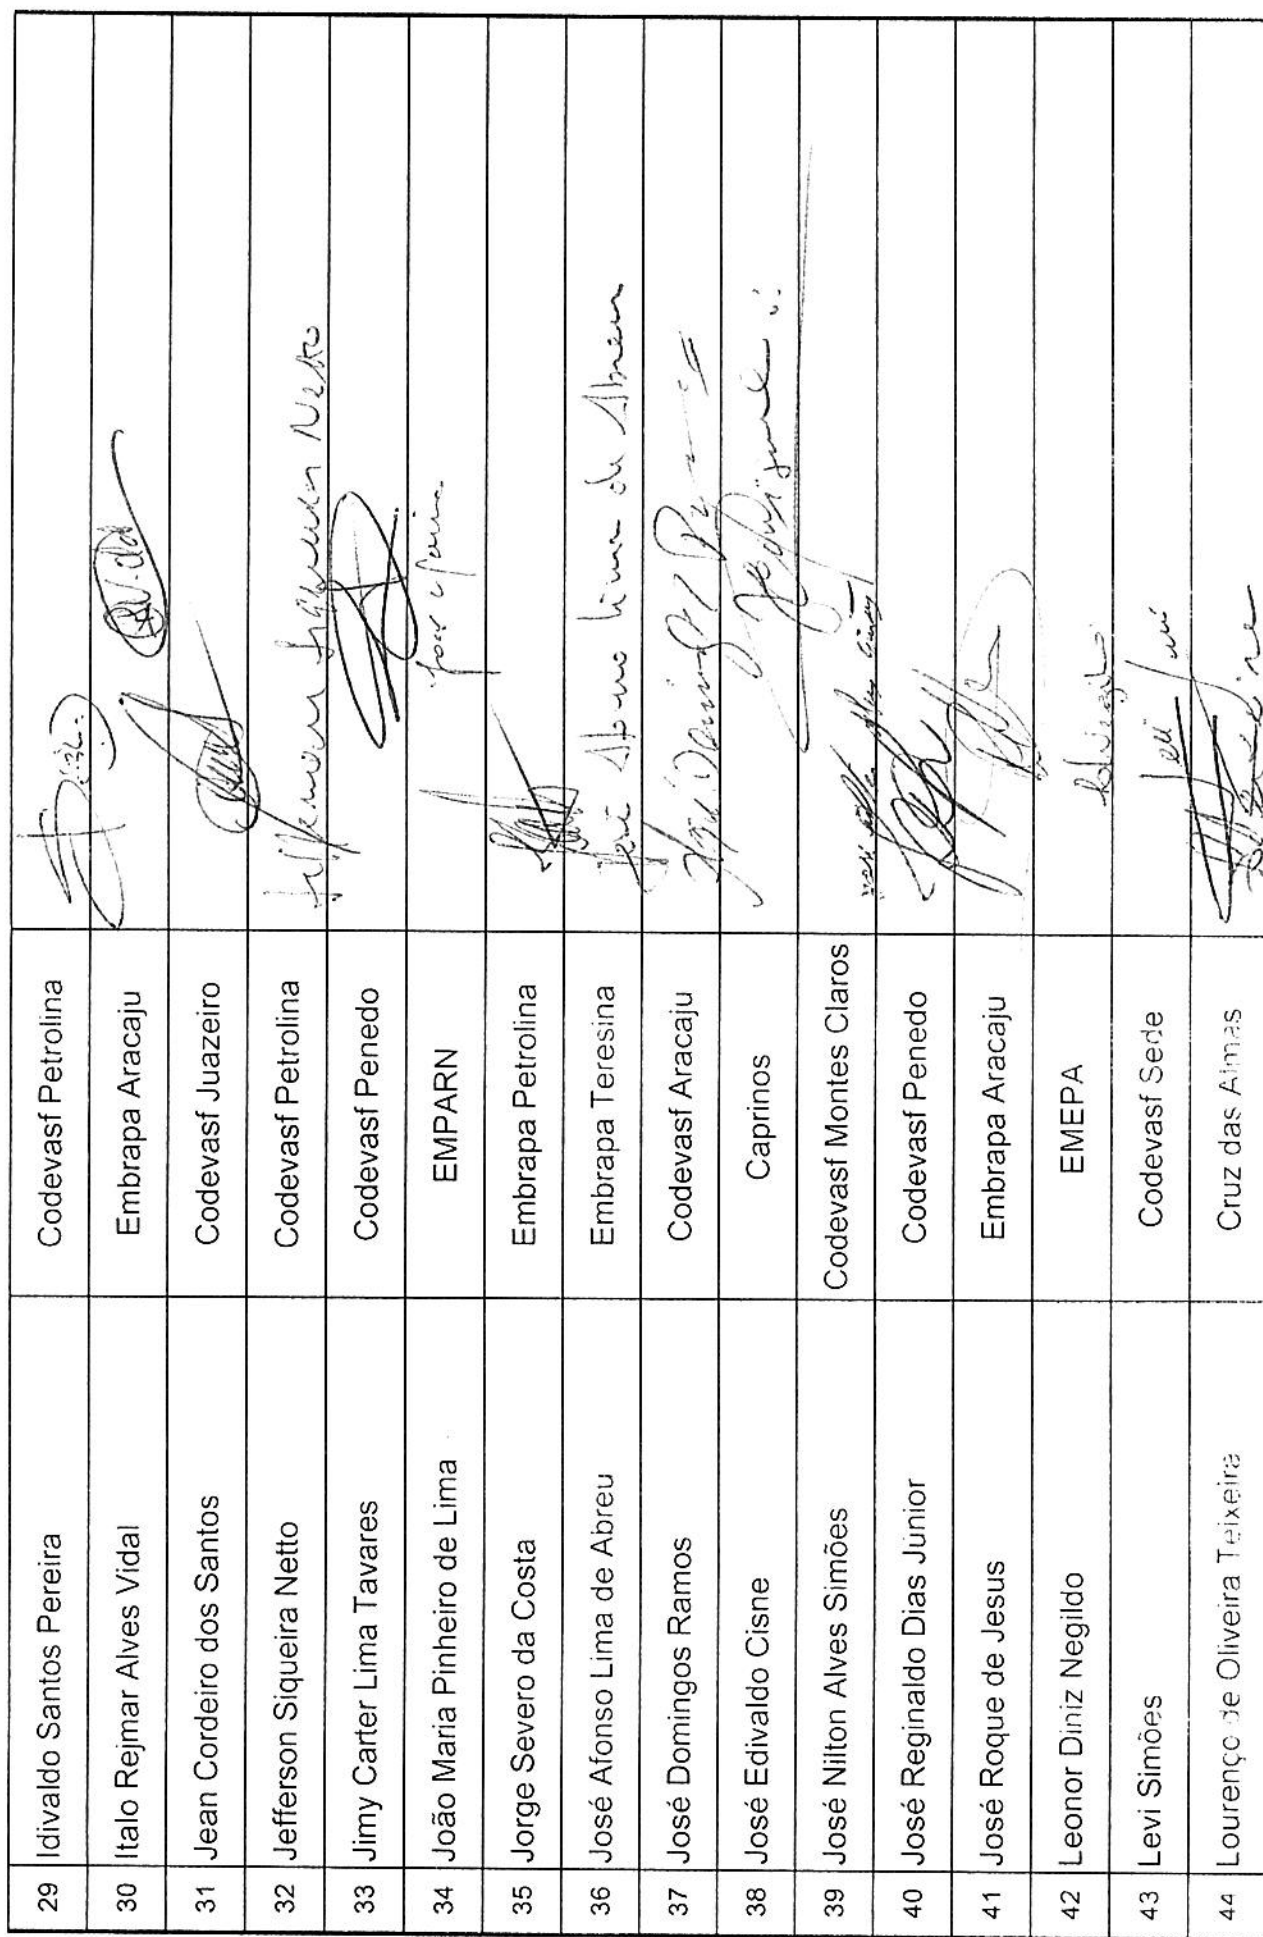 29 Idivaldo Santos Pereira Codevasf Petrolina
30 Italo Rejmar Alves Vidal Embrapa Aracaju
31 Jean Cordeiro dos Santos Codevasf Juazeiro
32 Jefferson Siqueira Netto Codevasf Petrolina Jefferson Siqueira Netto
33 Jimy Carter Lima Tavares Codevasf Penedo
34 João Maria Pinheiro de Lima EMPARN
35 Jorge Severo da Costa Embrapa Petrolina
36 José Afonso Lima de Abreu Embrapa Teresina José Afonso Lima de Abreu
37 José Domingos Ramos Codevasf Aracaju
38 José Edivaldo Cisne Caprinos
39 José Nilton Alves Simões Codevasf Montes Claros
40 José Reginaldo Dias Junior Codevasf Penedo
41 José Roque de Jesus Embrapa Aracaju
42 Leonor Diniz Negildo EMEPA
43 Levi Simões Codevasf Sede
44 Lourenço de Oliveira Teixeira Cruz das Almas